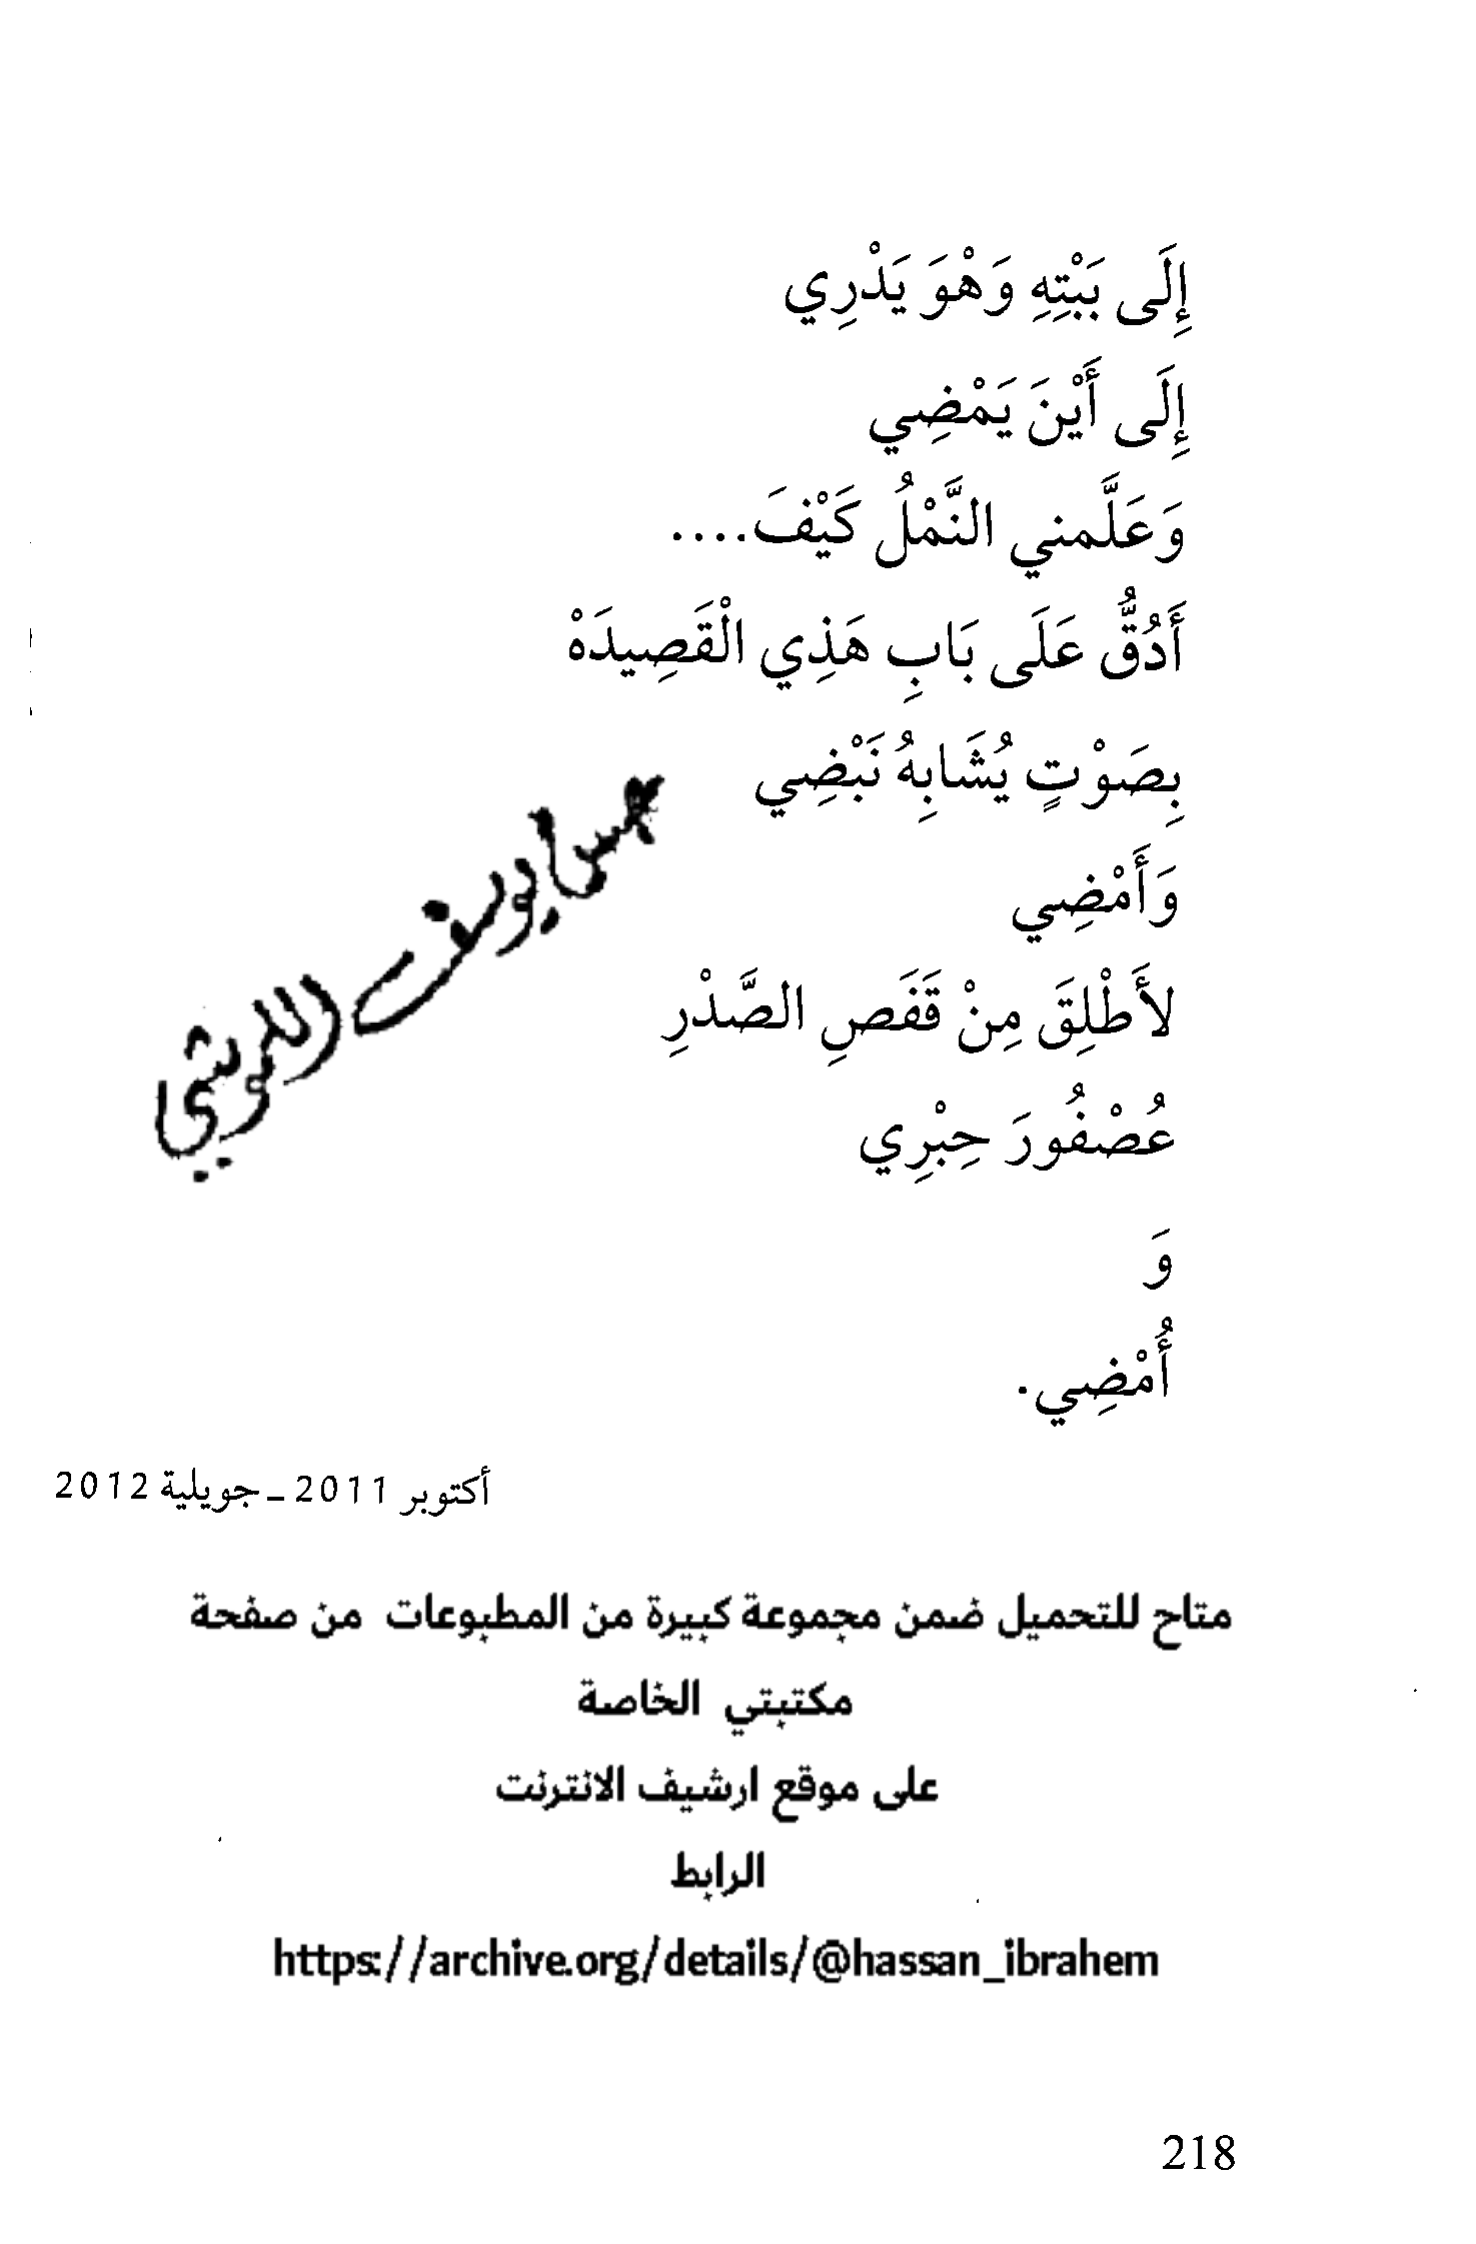 إِلَى بَبْتِهِ وَهْوَ يَدْرِي
إِلَى أَيْنَ يَمْضِي
وَعَلَّمني النَّمْلُ كَيْفَ....
أَدُقُّ عَلَى بَابِ هَذِي الْقَصِيدَهْ
بِصَوْتٍ يُشَابِهُ نَبْضِي
وَأَمْضِي
لأَطْلِقَ مِنْ قَفَصِ الصَّدْرِ
عُصْفُورَ حِبْرِي
وَ
أُمْضِي.
يوسف
أكتوبر 2011 - جويلية 2012
متاح للتحميل ضمن مجموعة كبيرة من المطبوعات من صفحة
مكتبتي الخاصة
على موقع ارشيف الانترنت
الرابط
https://archive.org/details/@hassan_ibrahem
218